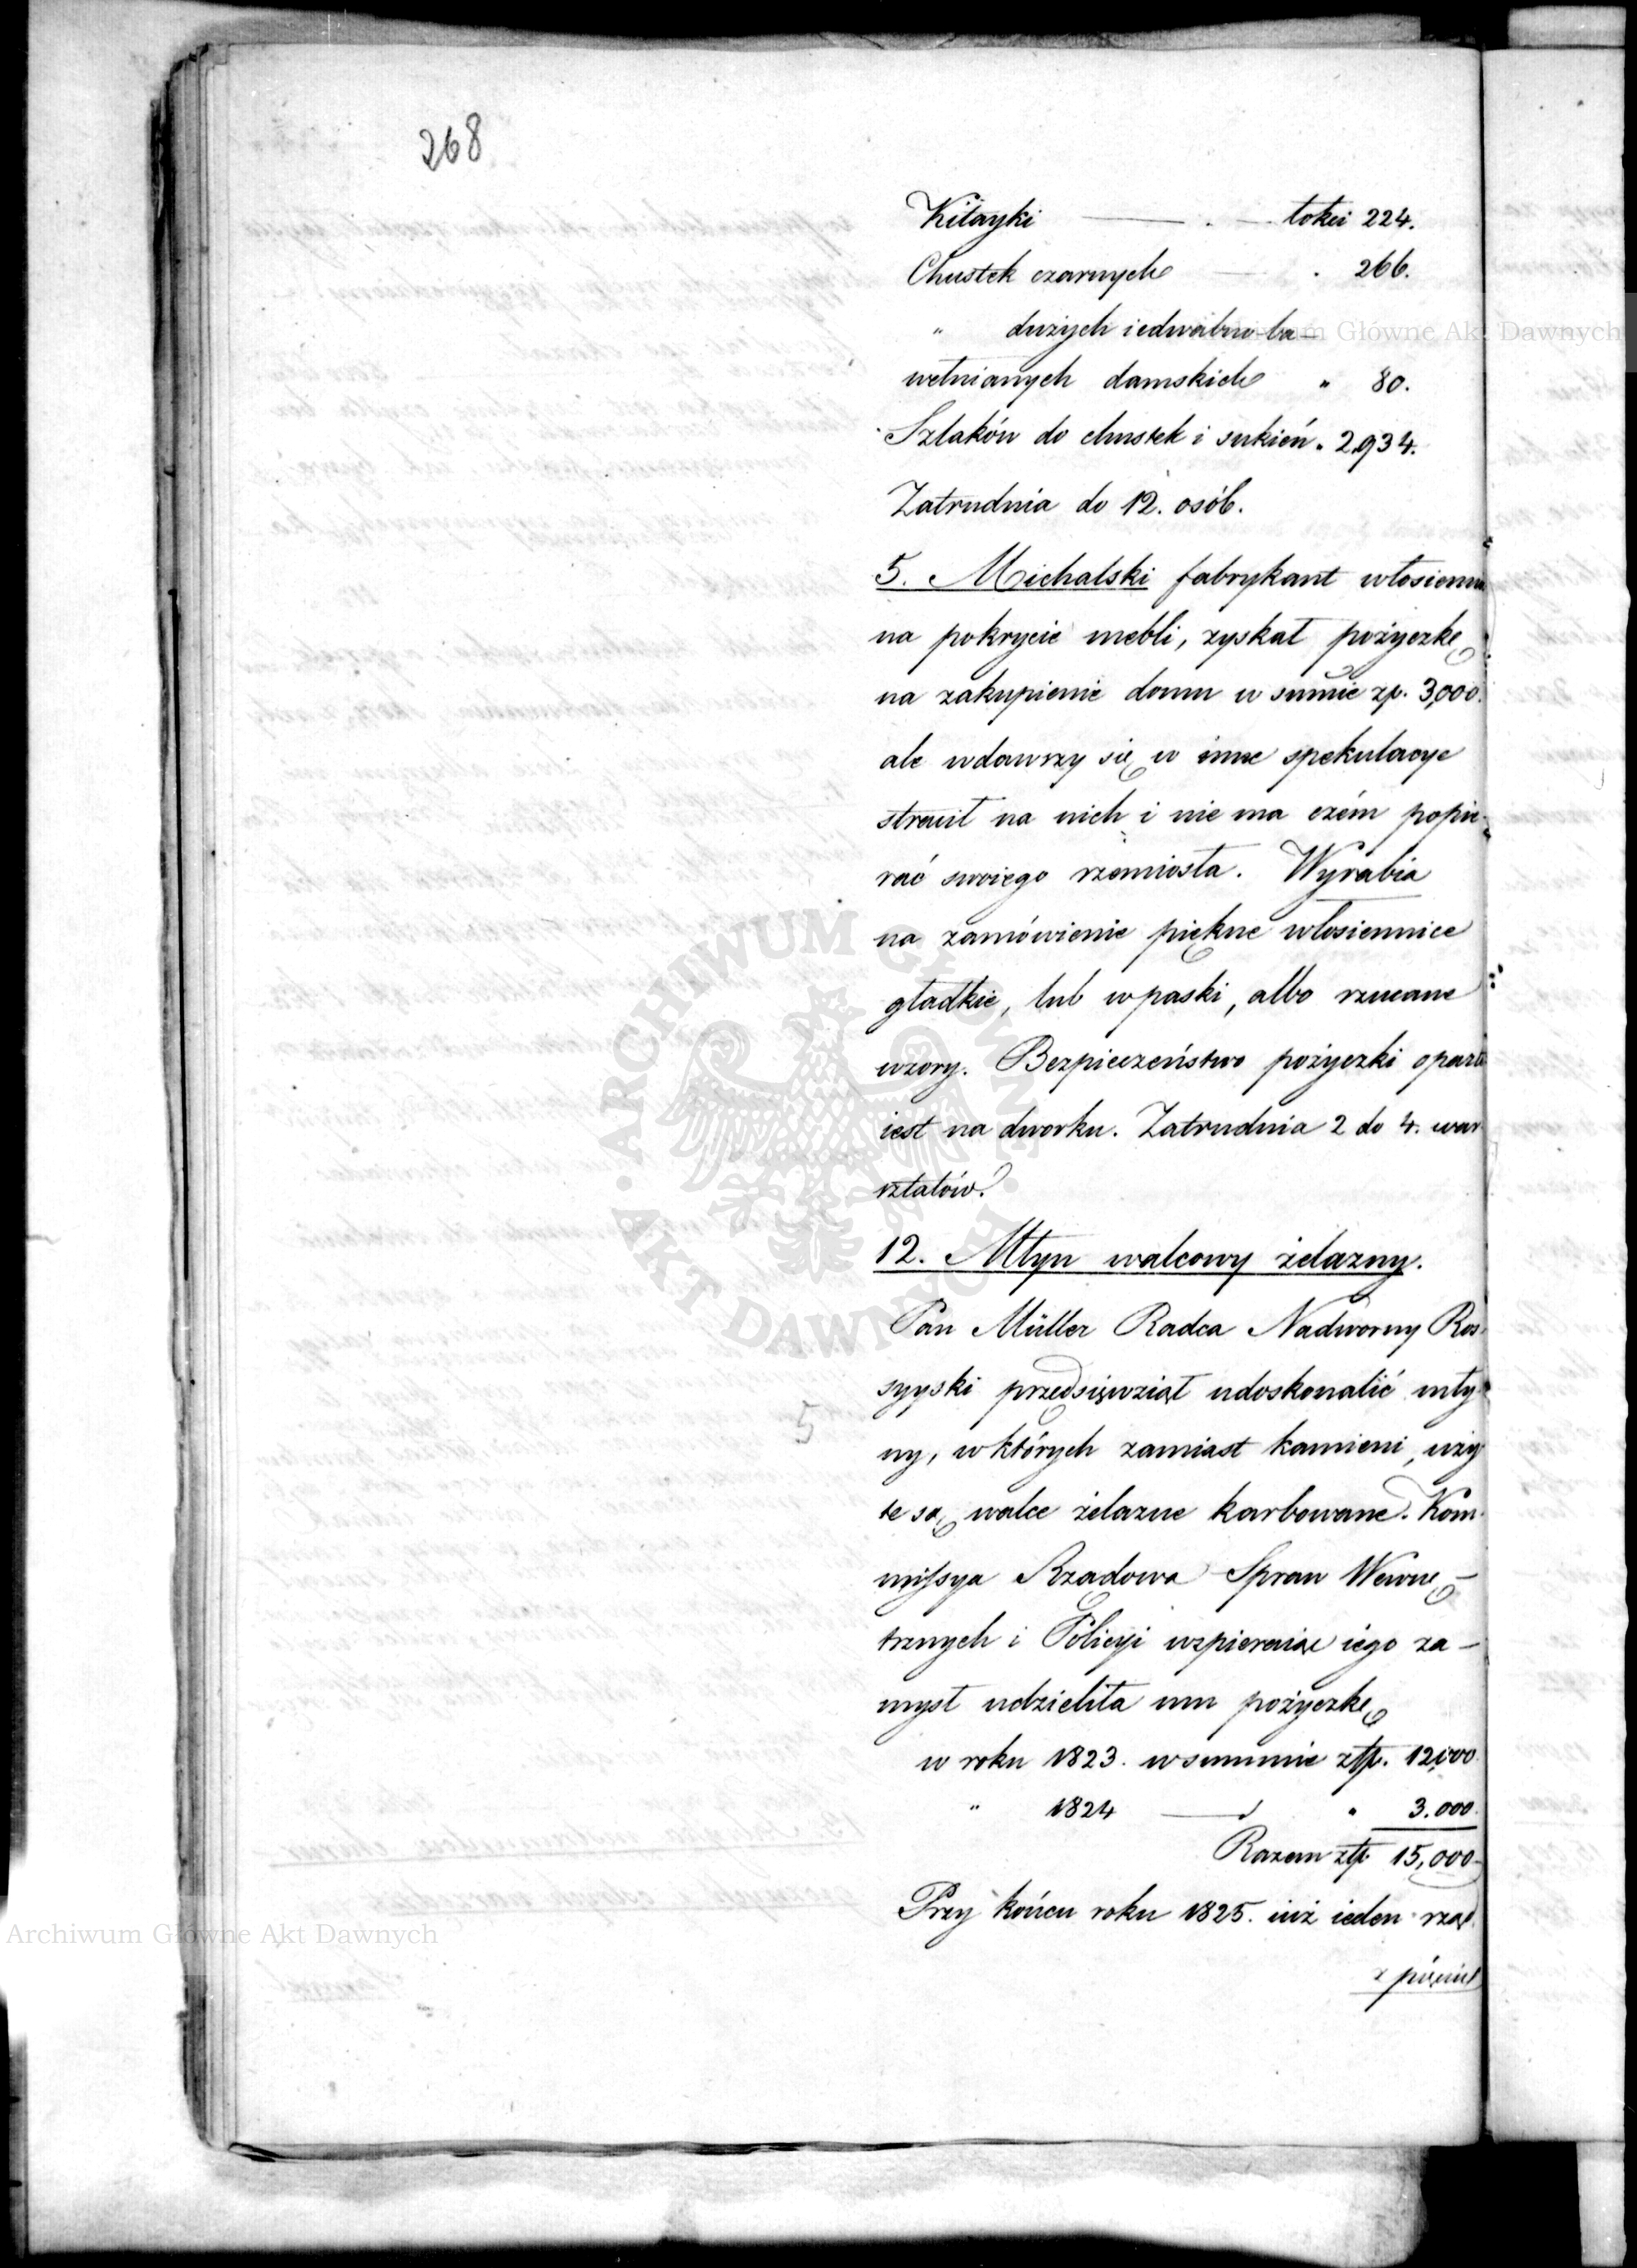 268
Kitayki — . — łokci 224.
Chustek czarnych — . 266.
" dużych iedwabno ba-
wełnianych damskich " 80.
Szlaków do chustek i sukień " 2,934.
Zatrudnia do 12. osób.
5. Michalski fabrykant włosienni
na pokrycie mebli, zyskał pożyczkę
na zakupienie domu w sum̄ie zp. 3,000.
ale wdawszy się w inne spekulacye
stracił na nich i nie ma czém popie-
rać swoiego rzemiosła. Wyrabia
na zamówienie piękne włosiennice
gładkie, lub w paski, albo rzucane
wzory. Bezpieczeństwo pożyczki oparte
iest na dworku. Zatrudnia 2 do 4. war
sztatów.
12. Młyn walcowy żelazny.
Pan Müller Radca Nadworny Ros-
syyski przedsięwziął udoskonalić mły-
ny, w których zamiast kamieni, uży
te są walce żelazne karbowane. Kom-
missya Rządowa Spraw Wewnę-
trznych i Policyi wspieraiąc iego za-
mysł udzieliła mu pożyczkę
w roku 1823. w summie złp. 12,000
" 1824 — " 3.000.
Razem złp. 15,000
Przy końcu roku 1825. iuż ieden rząd
z pięciu
5
Archiwum Główne Akt Dawnych
Archiwum Główne Akt Dawnych
ARCHIWUM GŁÓWNE · AKT DAWNYCH ·